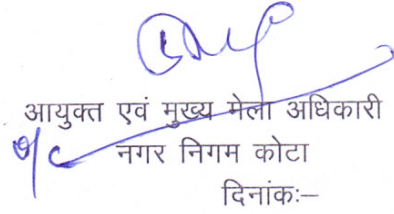 आयुक्त एवं मुख्य मेला अधिकारी
नगर निगम कोटा
दिनांकः–